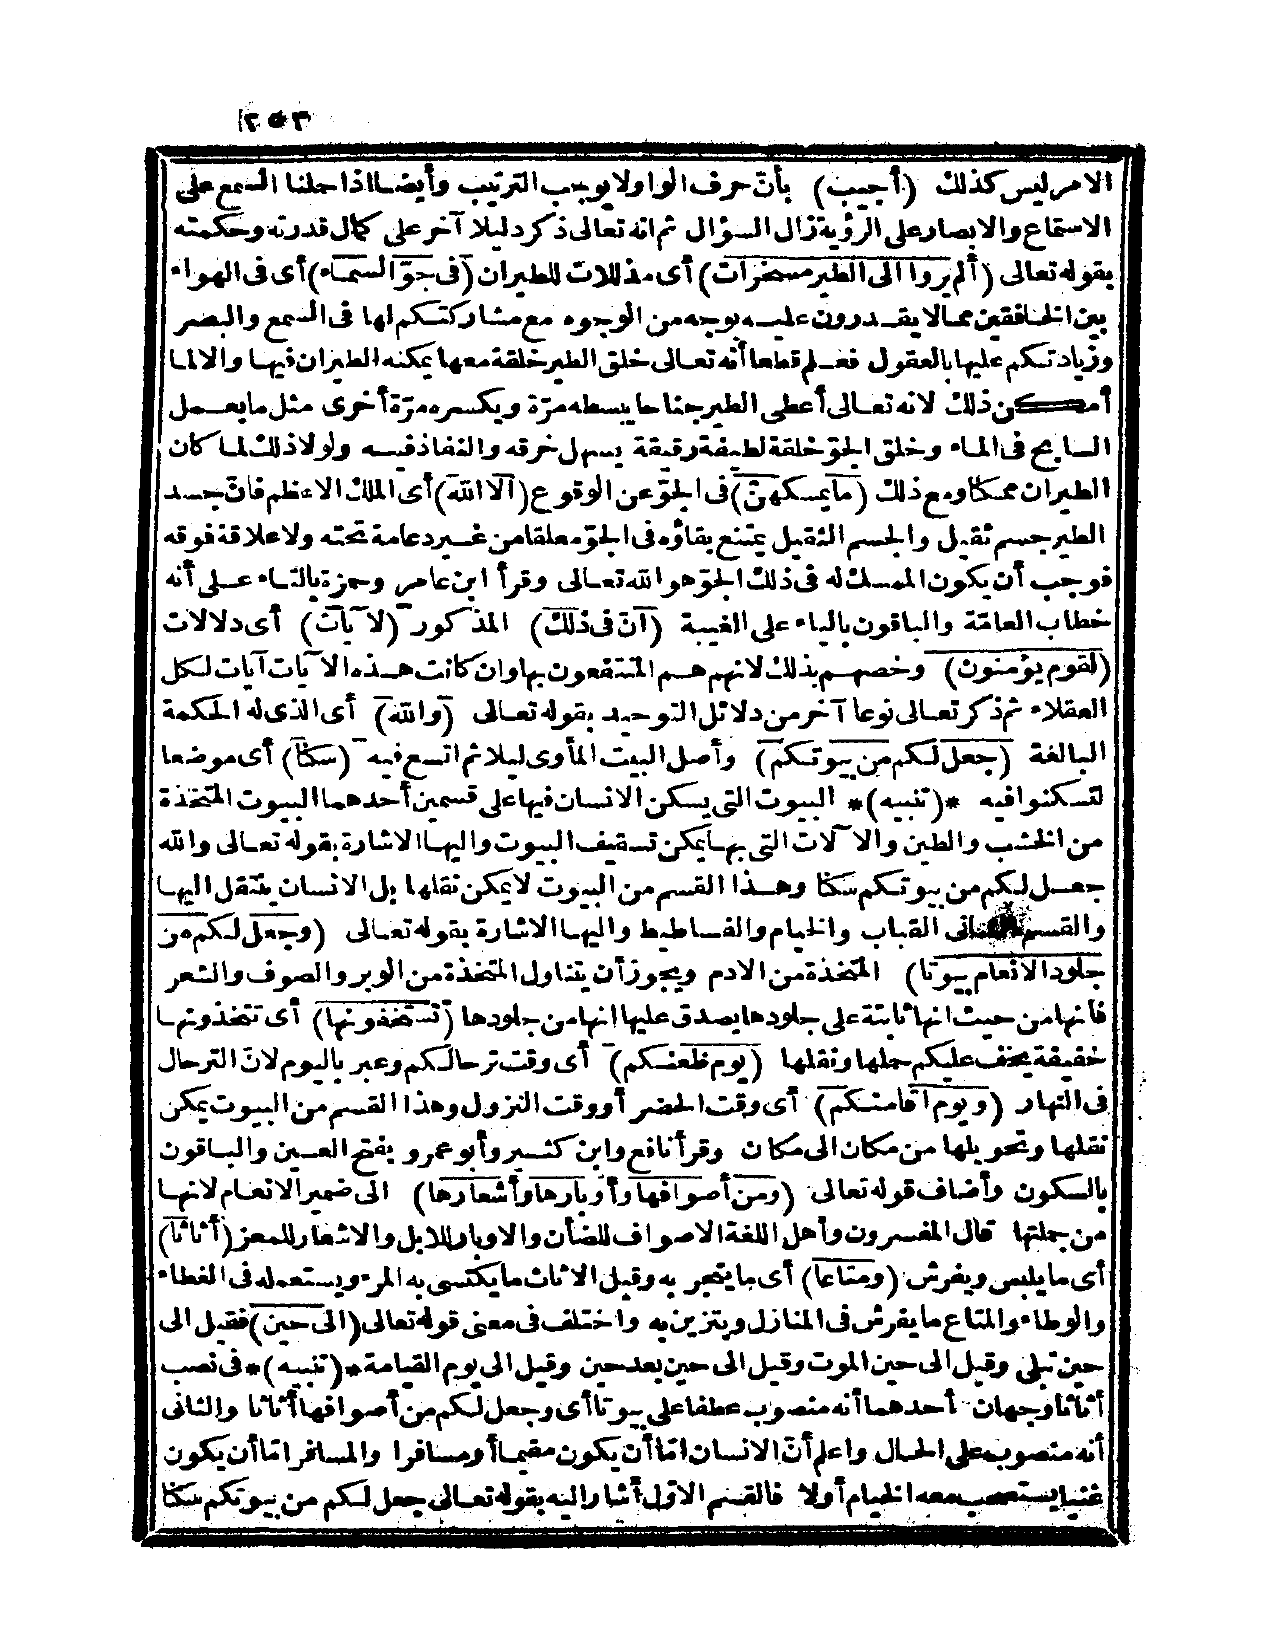 ٢٥٣
الامر ليس كذلك (أجيب) بأنّ حرف الواو لا يوجب الترتيب وأيضا اذا حملنا السمع على
الاستماع والابصار على الرؤية زال السؤال ثم انه تعالى ذكر دليلا آخر على كمال قدرته وحكمته
بقوله تعالى (ألم يروا الى الطير مسخرات) أى مذللات للطيران (فى جوّ السماء) أى فى الهواء
بين الخافقين مما لا يقدرون عليه بوجه من الوجوه مع مشاركتكم لها فى السمع والبصر
وزيادتكم عليها بالعقول فعلم قطعا أنه تعالى خلق الطير خلقة معها يمكنه الطيران فيها والا لما
أمكن ذلك لانه تعالى أعطى الطير جناحا يبسطه مرّة ويكسره مرّة أخرى مثل ما يعمل
السابح فى الماء وخلق الجوّ خلقة لطيفة رقيقة يسهل خرقه والنفاذ فيه ولولا ذلك لما كان
الطيران ممكنا ومع ذلك (ما يمسكهنّ) فى الجوّ عن الوقوع (الا الله) أى الملك الاعظم فانّ جسد
الطير جسم ثقيل والجسم الثقيل يمتنع بقاؤه فى الجوّ معلقا من غير دعامة تحته ولا علاقة فوقه
فوجب أن يكون الممسك له فى ذلك الجوّ هو الله تعالى وقرأ ابن عامر وحمزة بالتاء على أنه
خطاب العامّة والباقون بالياء على الغيبة (انّ فى ذلك) المذكور (لآيات) أى دلالات
(لقوم يؤمنون) وخصهم بذلك لانهم هم المنتفعون بها وان كانت هذه الآيات آيات لكل
العقلاء ثم ذكر تعالى نوعا آخر من دلائل التوحيد بقوله تعالى (والله) أى الذى له الحكمة
البالغة (جعل لكم من بيوتكم) وأصل البيت المأوى ليلا ثم اتسع فيه (سكنا) أى موضعا
لتسكنوا فيه *(تنبيه)* البيوت التى يسكن الانسان فيها على قسمين أحدهما البيوت المتخذة
من الخشب والطين والآلات التى بها يمكن تسقيف البيوت واليها الاشارة بقوله تعالى والله
جعل لكم من بيوتكم سكنا وهذا القسم من البيوت لا يمكن نقلها بل الانسان ينتقل اليها
والقسم الثانى القباب والخيام والفساطيط واليها الاشارة بقوله تعالى (وجعل لكم من
جلود الانعام بيوتا) المتخذة من الادم ويجوز أن يتناول المتخذة من الوبر والصوف والشعر
فانها من حيث انها نابتة على جلودها يصدق عليها انها من جلودها (تستخفونها) أى تتخذونها
خفيفة يخف عليكم حملها ونقلها (يوم ظعنكم) أى وقت ترحالكم وعبر باليوم لانّ الترحال
فى النهار (ويوم اقامتكم) أى وقت الحضر أو وقت النزول وهذا القسم من البيوت يمكن
نقلها وتحويلها من مكان الى مكان وقرأ نافع وابن كثير وأبو عمرو بفتح العين والباقون
بالسكون وأضاف قوله تعالى (ومن أصوافها وأوبارها وأشعارها) الى ضمير الانعام لانها
من جملتها قال المفسرون وأهل اللغة الاصواف للضأن والاوبار للابل والاشعار للمعز (أثاثا)
أى ما يلبس ويفرش (ومتاعا) أى ما يتجر به وقيل الاثاث ما يكتسى به المرء ويستعمله فى الغطاء
والوطاء والمتاع ما يفرش فى المنازل ويتزين به واختلف فى معنى قوله تعالى (الى حين) فقيل الى
حين تبلى وقيل الى حين الموت وقيل الى حين بعد حين وقيل الى يوم القيامة *(تنبيه)* فى نصب
أثاثا وجهان أحدهما أنه منصوب عطفا على بيوتا أى وجعل لكم من أصوافها أثاثا والثانى
أنه منصوب على الحال واعلم أنّ الانسان امّا أن يكون مقيما أو مسافرا والمسافر امّا أن يكون
غنيا يستصحب معه الخيام أولا فالقسم الاوّل أشار اليه بقوله تعالى جعل لكم من بيوتكم سكنا